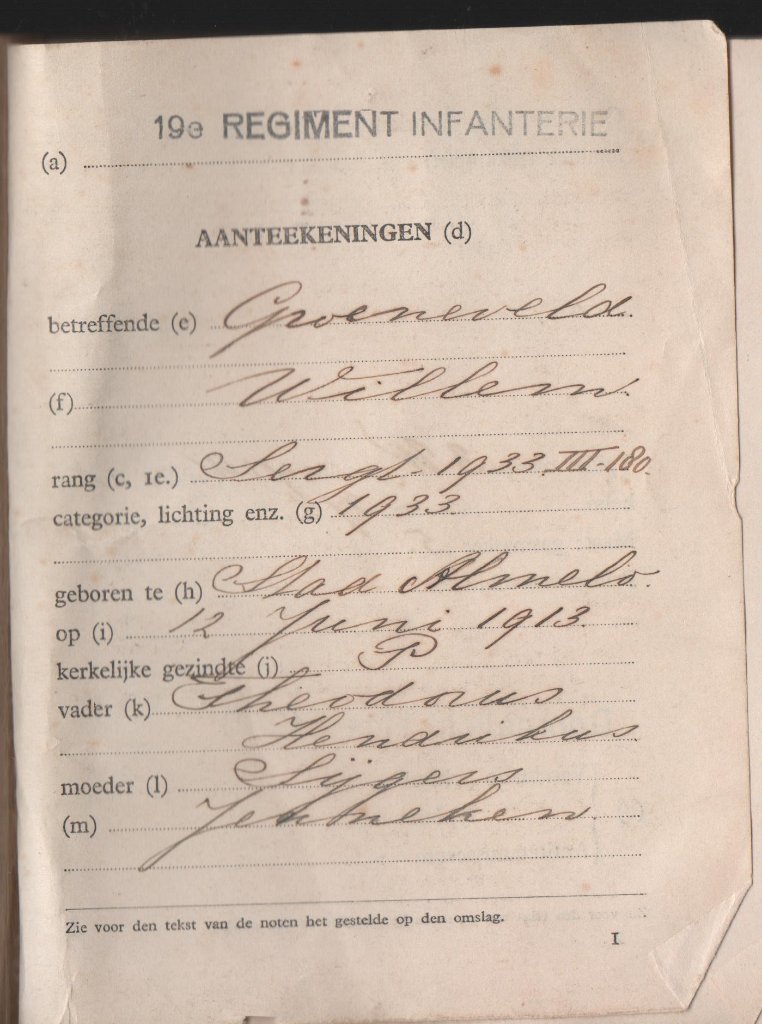 19e REGIMENT INFANTERIE
(a)
AANTEEKENINGEN (d)
betreffende (e) Groeneveld.
(f) Willem.
rang (c, 1e.) Sergt. 1933.III-180.
categorie, lichting enz. (g) 1933.
geboren te (h) Stad Almelo.
op (i) 12 Juni 1913.
kerkelijke gezindte (j) P
vader (k) Theodorus
Hendrikus
moeder (l) Sijgers
(m) Jenneken.
Zie voor den tekst van de noten het gestelde op den omslag.
1